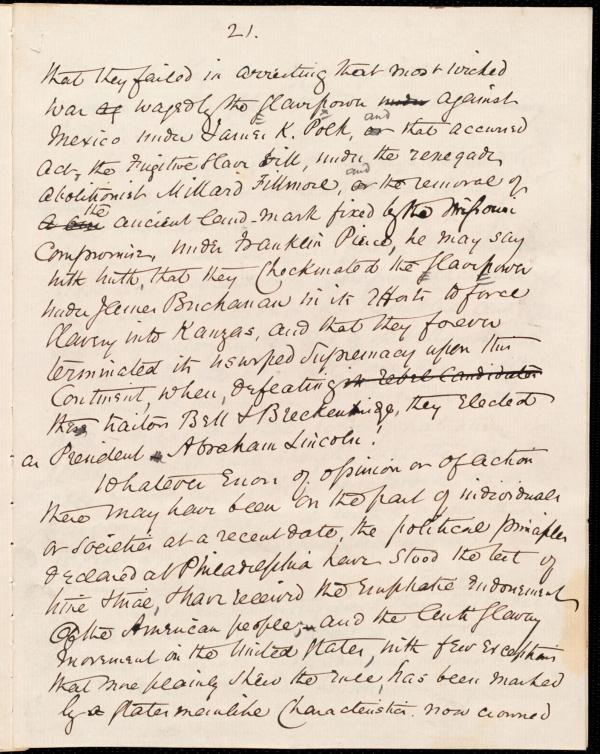 21.
that they failed in arresting that most wicked
war of waged by the Slave power under against
Mexico under James K. Polk, or and that accursed
Act, the Fugitive Slave bill, under the renegade
abolitionist Millard Fillmore, or and the removal of
the ancient land-mark fixed by the Missouri
Compromise, under Franklin Pierce, he may say
with truth, that they Checkmated the Slave power
under James Buchanan in its efforts to force
Slavery into Kanzas, and that they forever
terminated its usurped Supremacy upon this
Continent, when, defeating its rebel Candidates
the traitors Bell & Breckenridge, they Elected
as President Abraham Lincoln!
Whatever Errors of opinion or of action
there may have been on the part of individuals
or Societies at a recent date, the political principles
declared at Philadelphia have stood the test of
time & have received the Emphatic Endorsement
of the American people; and the Anti Slavery
movement in the United States, with few exceptions
that more plainly shew the rule, has been marked
by Statesmanlike Characteristics. now crowned